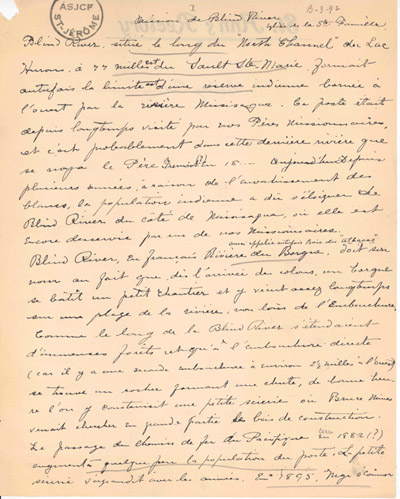 ASJCF
ST-JÉRÔME
I
B-3-92
Mission de Blind River
Église de la Ste Famille
Blind River, située le long du North Channel du Lac
Huron, à 77 milles est du Sault Ste Marie formait
autrefois la limite est d'une réserve indienne bornée à
l'ouest par la rivière Mississague. Ce poste était
depuis longtemps visité par nos Pères Missionnaires,
et c'est probablement dans cette dernière rivière que
se noya le Père en 18... Depuis
plusieurs années, à raison de l'envahissement des
blancs, la population indienne a dû s'éloigner de
Blind River du côté de Mississague, où elle est
encore desservie par un de nos Missionnaires.
Blind River, en français Rivière du Borgne, doit son
nom au fait que, dès l'arrivée des colons, un borgne
se bâtit un petit chantier et y vécut assez longtemps
sur une plage de la rivière, non loin de l'embouchure.
Comme le long de la Blind River s'étendaient
d'immenses forêts et qu'à l'embouchure directe
(car il y a une seconde embouchure à environ 2½ milles à l'ouest)
se trouve un rocher formant une chute, de bonne heu-
re l'on y construisit une petite scierie où Bruce Mines
venait chercher en grande partie le bois de construction.
Le passage du chemin de fer du Pacifique en 1882 (?)
augmenta quelque peu la population du poste. La petite
scierie s'agrandit avec les années. En 1895, Mgr O'Connor